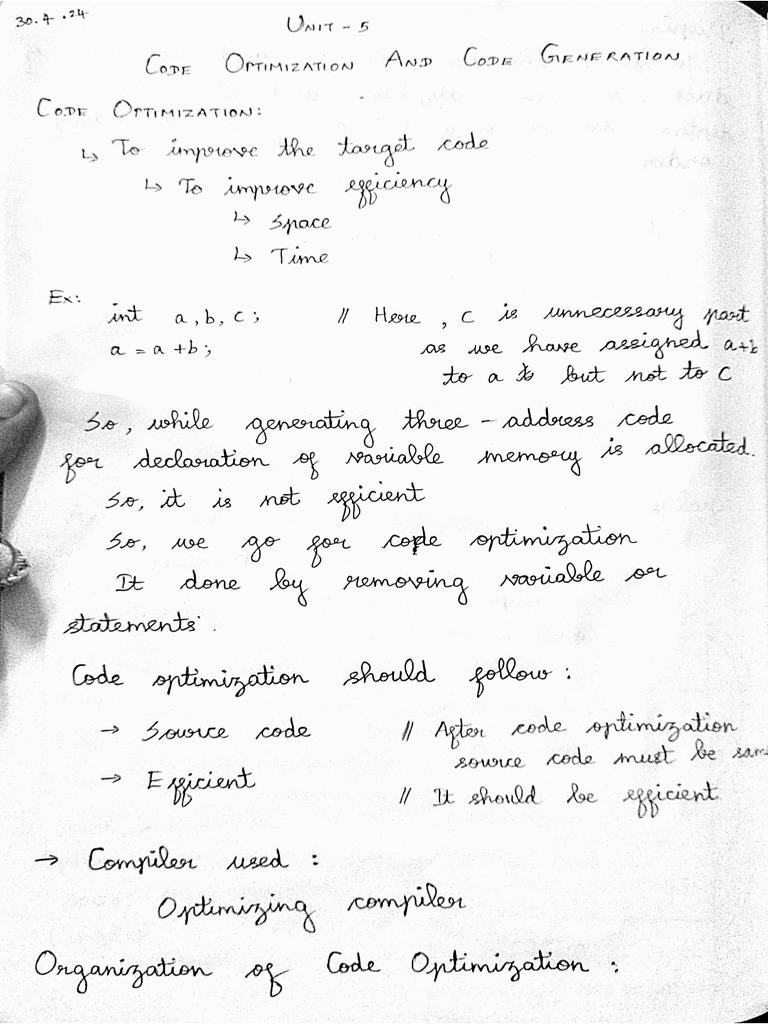 30.4.24
UNIT - 5
CODE OPTIMIZATION AND CODE GENERATION
CODE OPTIMIZATION:
↳ To improve the target code
↳ To improve efficiency
↳ Space
↳ Time
Ex:
int a, b, c; // Here, c is unnecessary part
a = a + b; as we have assigned a+b
to a but not to c
So, while generating three - address code
for declaration of variable memory is allocated.
So, it is not efficient
So, we go for code optimization
It done by removing variable or
statements.
Code optimization should follow:
→ Source code // After code optimization
source code must be sam
→ Efficient // It should be efficient
→ Compiler used:
Optimizing compiler
Organization of Code Optimization: